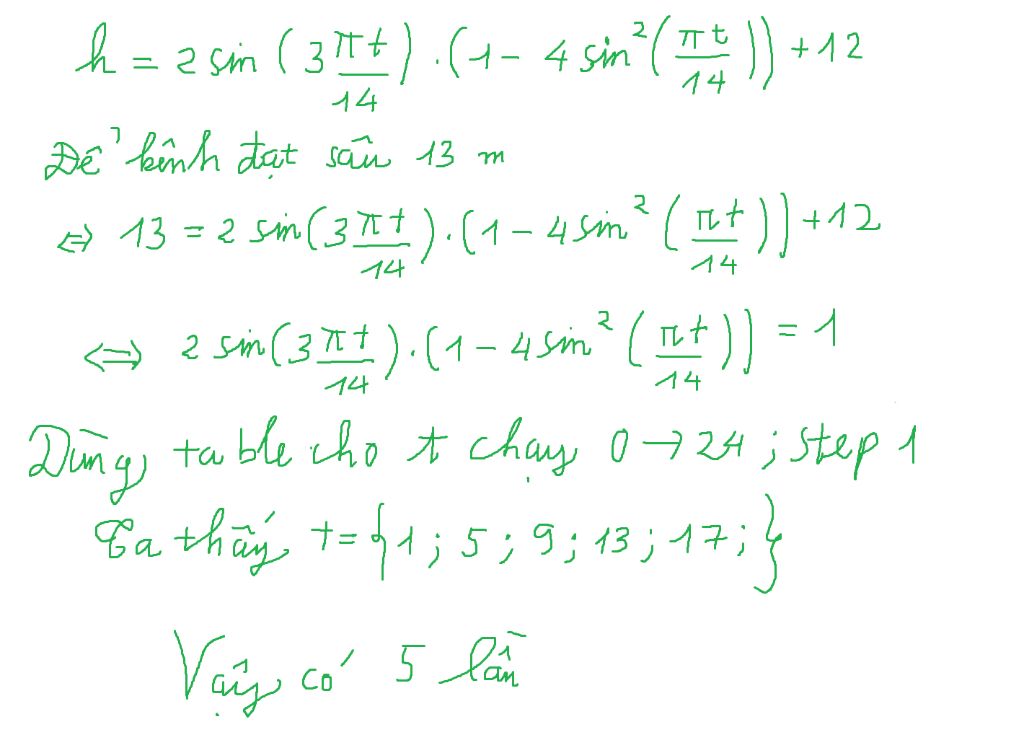 h = 2 sin (3 πt/14) . (1 - 4 sin²(πt/14)) + 12
Để kênh đạt sâu 13 m
⇔ 13 = 2 sin(3 πt/14) . (1 - 4 sin²(πt/14)) + 12
⇔ 2 sin(3 πt/14) . (1 - 4 sin²(πt/14)) = 1
Dùng table cho t chạy 0 → 24 ; step 1
Ta thấy t = {1 ; 5 ; 9 ; 13 ; 17 ; }
Vậy có 5 lần